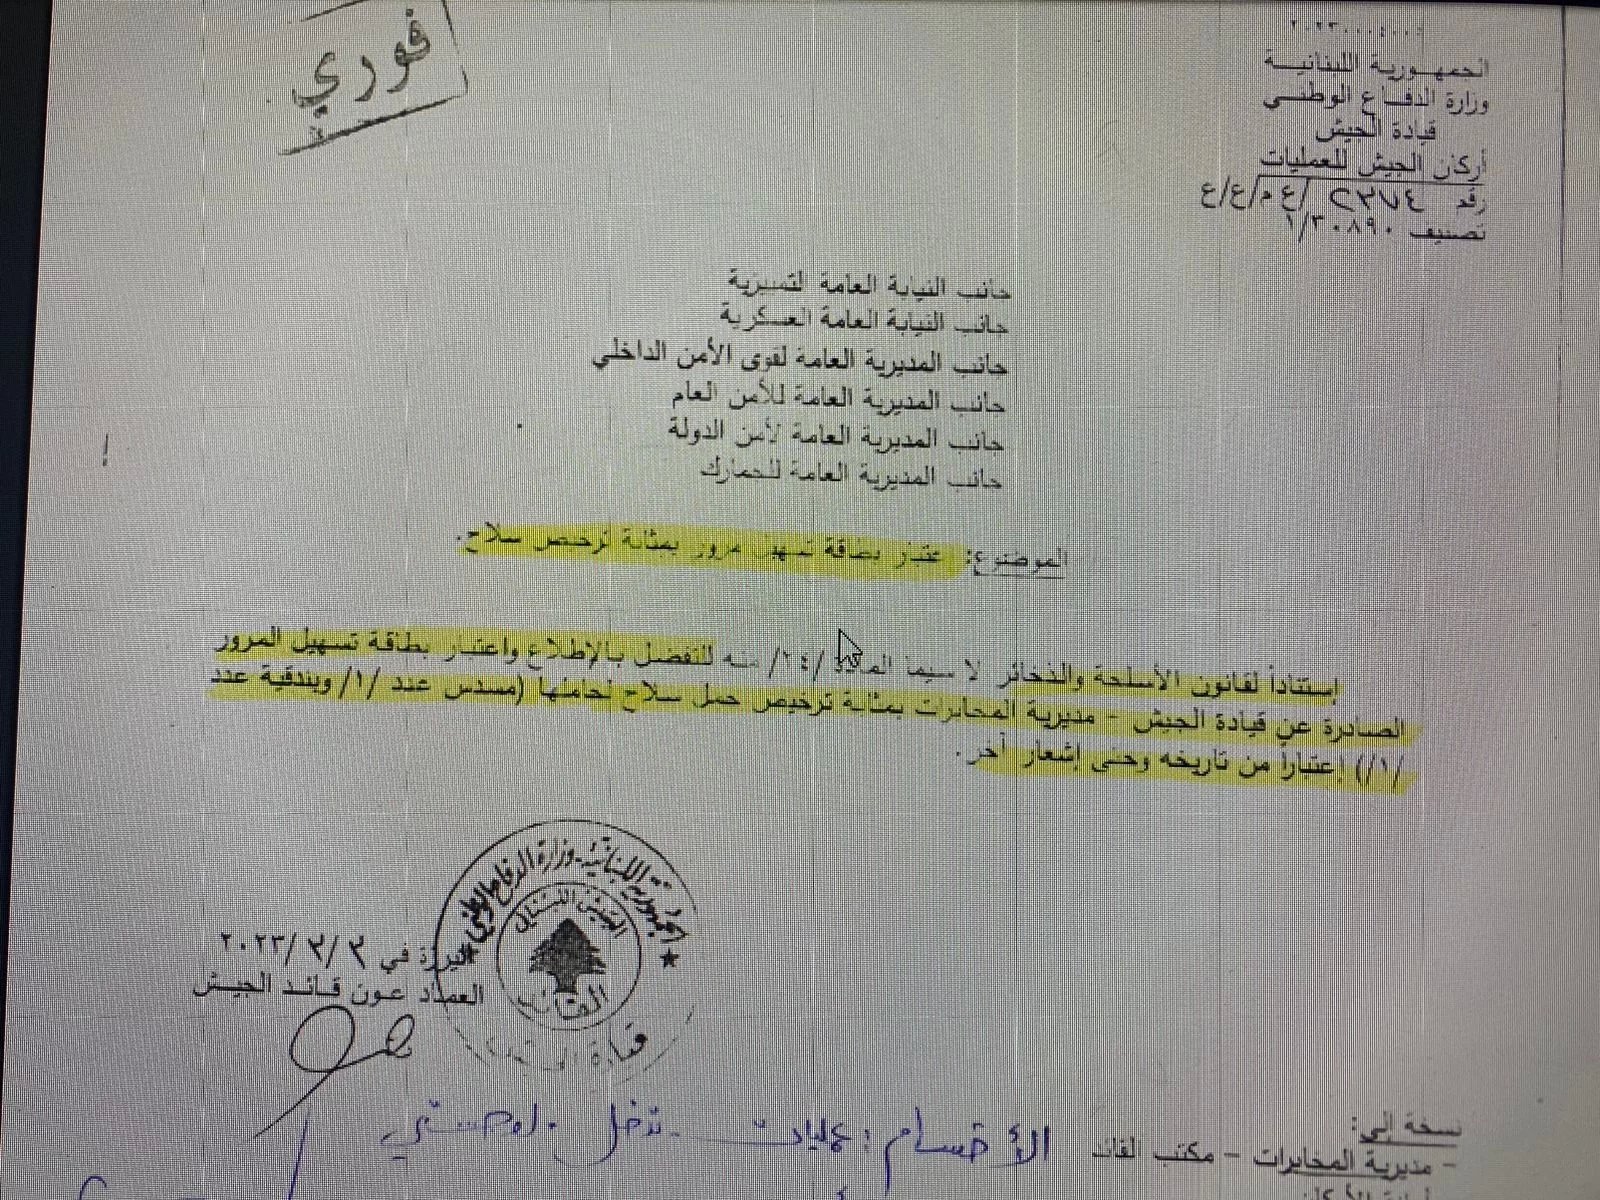 فوري
٢٠٢٣٠٠٠٤٠٠
الجمهورية اللبنانية
وزارة الدفاع الوطني
قيادة الجيش
أركان الجيش للعمليات
رقم ٢٣٧٤ /ع م/ع/ع
تصنيف ١/٣٠٨٩٠
جانب النيابة العامة التمييزية
جانب النيابة العامة العسكرية
جانب المديرية العامة لقوى الأمن الداخلي
جانب المديرية العامة للأمن العام
جانب المديرية العامة لأمن الدولة
جانب المديرية العامة للجمارك
الموضوع: إعتبار بطاقة تسهيل مرور بمثابة ترخيص سلاح.
إستناداً لقانون الأسلحة والذخائر لا سيما المادة /٢٤/ منه للتفضل بالإطلاع واعتبار بطاقة تسهيل المرور
الصادرة عن قيادة الجيش - مديرية المخابرات بمثابة ترخيص حمل سلاح لحاملها (مسدس عدد /١/ وبندقية عدد
/١/) إعتباراً من تاريخه وحتى إشعار آخر.
الجمهورية اللبنانية - وزارة الدفاع الوطني
الجيش اللبناني
القائد
قيادة
اليرزة في ٣/٣/٢٠٢٣
العماد عون قائد الجيش
الأقسام: عمليات - تدخل
نسخة إلى:
- مديرية المخابرات - مكتب القائد